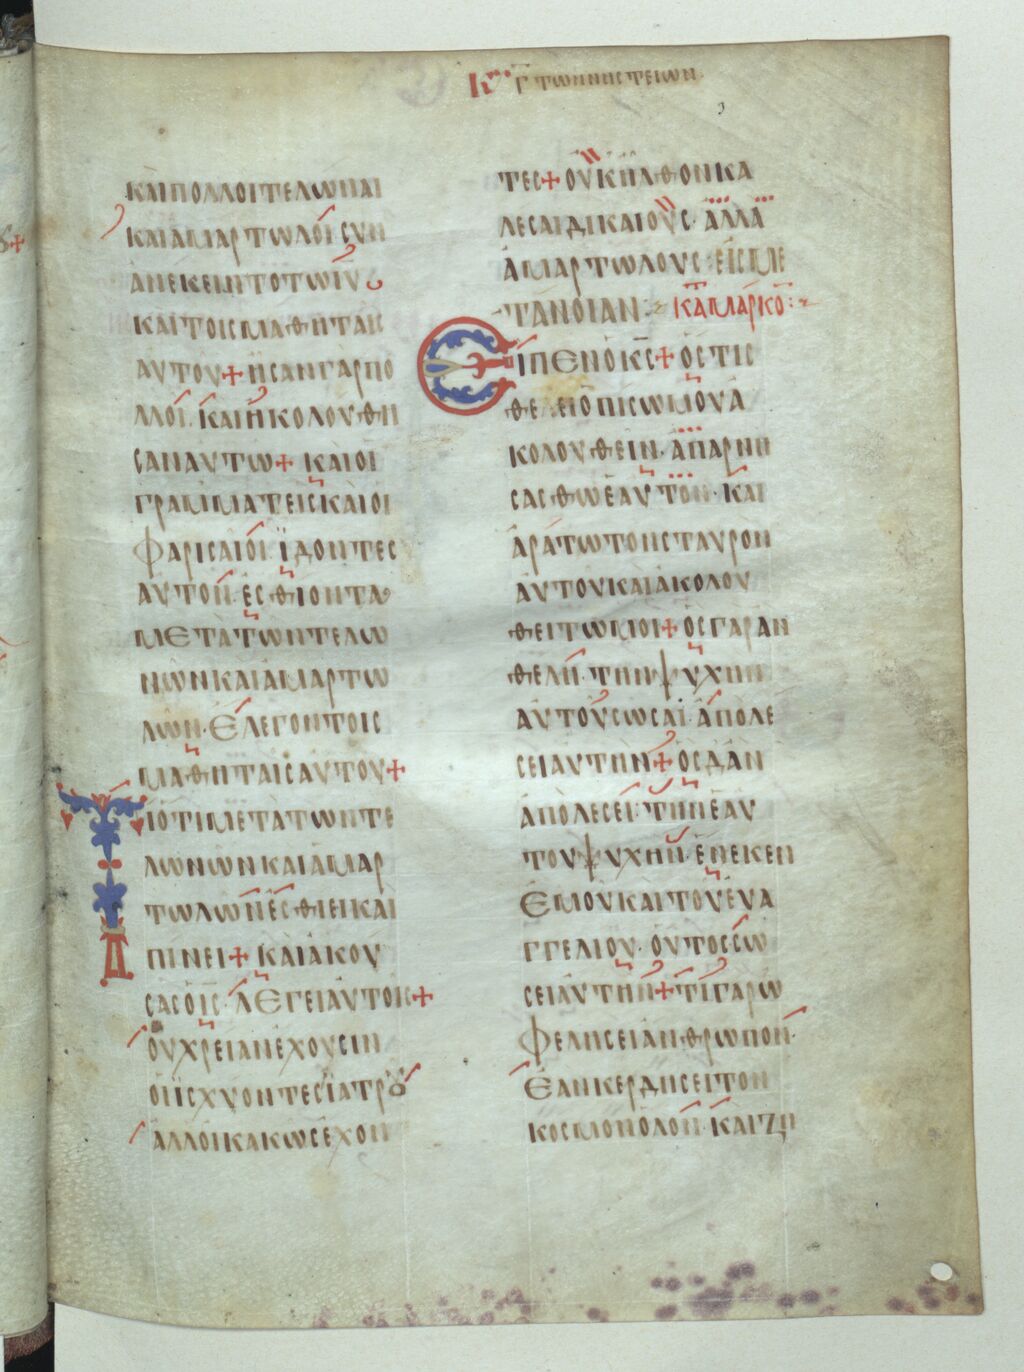 ΚΥ Γ ΤΩΝ ΝΗΣΤΕΙΩΝ
ΚΑΙΠΟΛΛΟΙΤΕΛΩΝΑΙ
ΚΑΙΑΜΑΡΤΩΛΟΙϹΥΝ
ΑΝΕΚΕΙΝΤΟΤΩΙΥ
ΚΑΙΤΟΙϹΜΑΘΗΤΑΙϹ
ΑΥΤΟΥ+ΗϹΑΝΓΑΡΠΟ
ΛΛΟΙ·ΚΑΙΗΚΟΛΟΥΘΗ
ϹΑΝΑΥΤΩ+ΚΑΙΟΙ
ΓΡΑΜΜΑΤΕΙϹΚΑΙΟΙ
ΦΑΡΙϹΑΙΟΙ·ΪΔΟΝΤΕϹ
ΑΥΤΟΝ·ΕϹΘΙΟΝΤΑ
ΜΕΤΑΤΩΝΤΕΛΩ
ΝΩΝΚΑΙΑΜΑΡΤΩ
ΛΩΝ·ΕΛΕΓΟΝΤΟΙϹ
ΜΑΘΗΤΑΙϹΑΥΤΟΥ+
ΤΙΟΤΙΜΕΤΑΤΩΝΤΕ
ΛΩΝΩΝΚΑΙΑΜΑΡ
ΤΩΛΩΝΕϹΘΙΕΙΚΑΙ
ΠΙΝΕΙ+ΚΑΙΑΚΟΥ
ϹΑϹΟΙϹ·ΛΕΓΕΙΑΥΤΟΙϹ+
ΟΥΧΡΕΙΑΝΕΧΟΥϹΙΝ
ΟΙΙϹΧΥΟΝΤΕϹΪΑΤΡΟΥ
ΑΛΛΟΙΚΑΚΩϹΕΧΟΝ
ΤΕϹ+ΟΥΚΗΛΘΟΝΚΑ
ΛΕϹΑΙΔΙΚΑΙΟΥϹ·ΑΛΛΑ
ΑΜΑΡΤΩΛΟΥϹ·ΕΙϹΜΕ
ΤΑΝΟΙΑΝ: ΚΑΤΑΜΑΡΚΟ:
ΕΙΠΕΝΟΚϹ+ΟϹΤΙϹ
ΘΕΛΕΙΟΠΙϹΩΜΟΥΑ
ΚΟΛΟΥΘΕΙΝ·ΑΠΑΡΝΗ
ϹΑϹΘΩΕΑΥΤΟΝ·ΚΑΙ
ΑΡΑΤΩΤΟΝϹΤΑΥΡΟΝ
ΑΥΤΟΥΚΑΙΑΚΟΛΟΥ
ΘΕΙΤΩΜΟΙ+ΟϹΓΑΡΑΝ
ΘΕΛΗ·ΤΗΝΨΥΧΗΝ
ΑΥΤΟΥϹΩϹΑΙ·ΑΠΟΛΕ
ϹΕΙΑΥΤΗΝ+ΟϹΔΑΝ
ΑΠΟΛΕϹΕΙ·ΤΗΝΕΑΥ
ΤΟΥΨΥΧΗΝ·ΕΝΕΚΕΝ
ΕΜΟΥΚΑΙΤΟΥΕΥΑ
ΓΓΕΛΙΟΥ·ΟΥΤΟϹϹΩ
ϹΕΙΑΥΤΗΝ+ΤΙΓΑΡΩ
ΦΕΛΗϹΕΙΑΝΘΡΩΠΟΝ·
ΕΑΝΚΕΡΔΗϹΕΙΤΟΝ
ΚΟϹΜΟΝΟΛΟΝ·ΚΑΙΖΗ